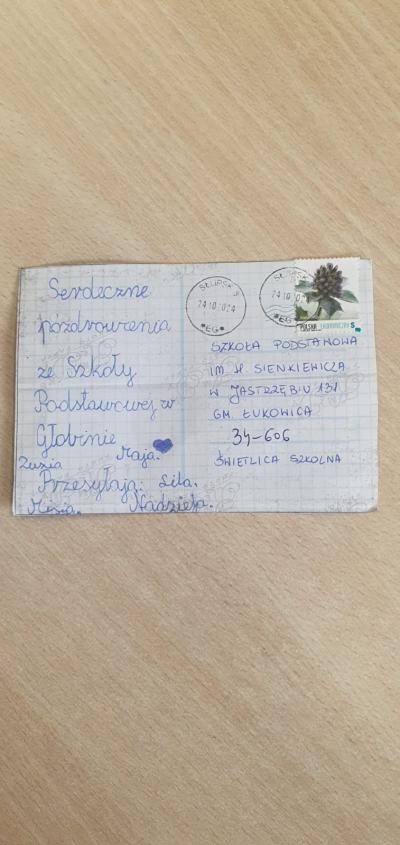 Serdeczne
pozdrowienia
ze Szkoły
Podstawowej w
Głobinie
Maja.
Zuzia
Przesyłają: Lila.
Misia. Nadzieja.
SŁUPSK 3
24 10 2024
*EG*
SŁUPSK 3
24 10
*EG*
POLSKA EKONOMICZNY S
SZKOŁA PODSTAWOWA
IM H SIENKIEWICZA
W JASTRZĘBIU 131
GM. ŁUKOWICA
34-606
ŚWIETLICA SZKOLNA